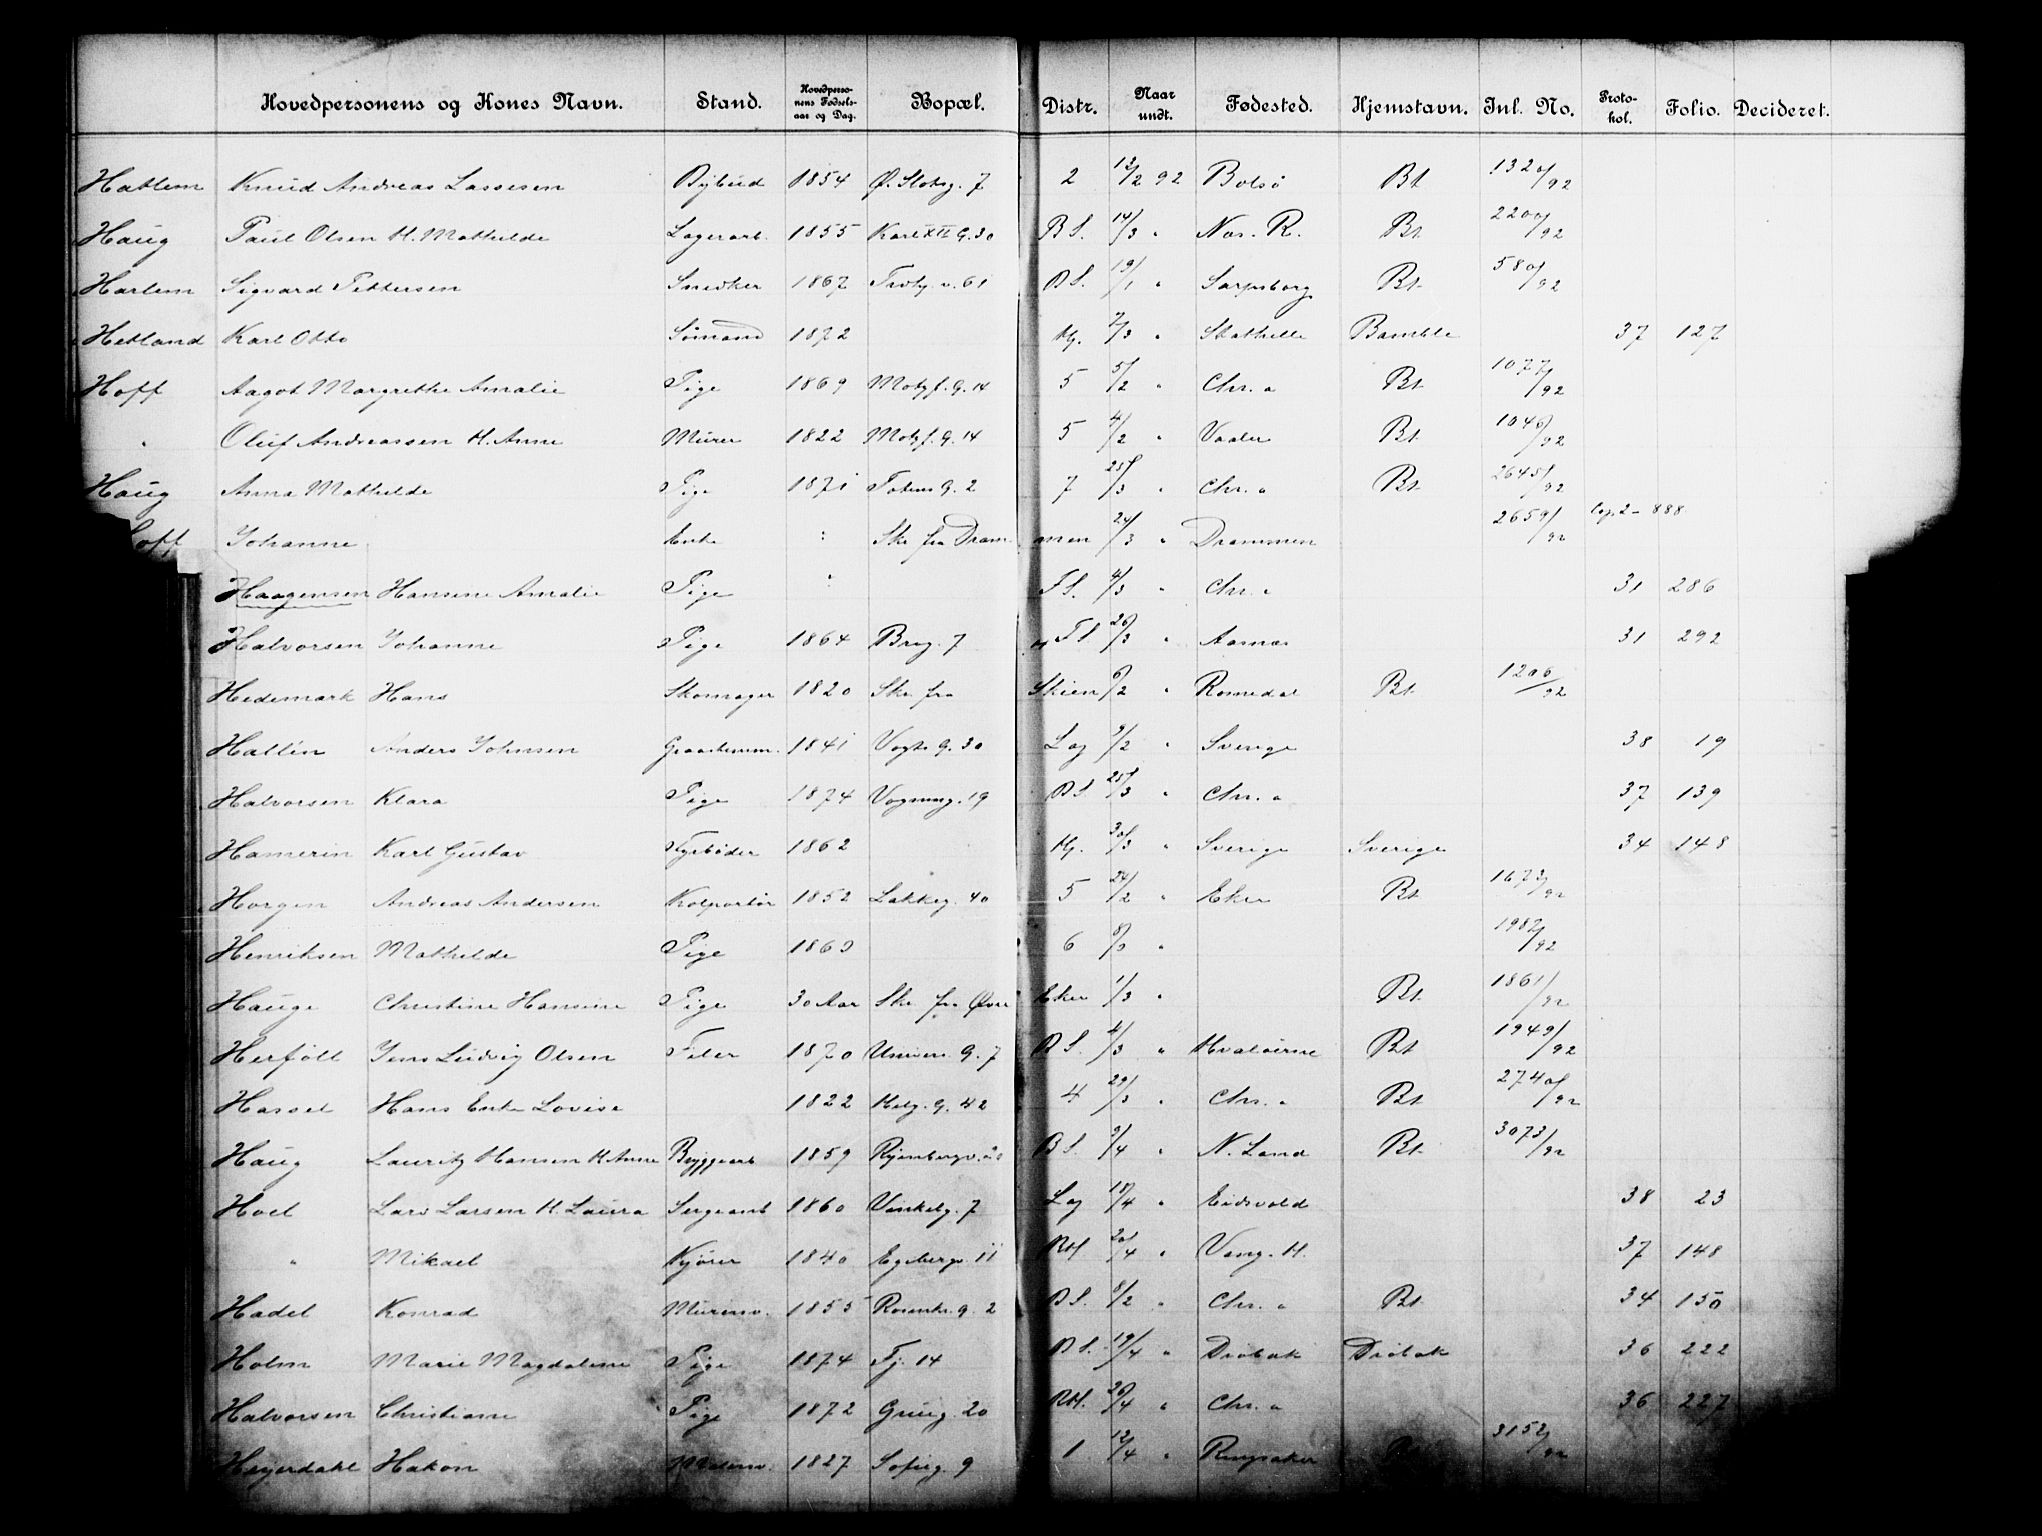 Hovedpersonens og Kones Navn. Stand. Hovedpersonens Fødselsaar og Dag. Bopæl. Distr. Naar undt. Fødested. Hjemstavn. Inl. No. Protokol. Folio. Decideret.
Hatlem Knud Andreas Lassesen Bybud 1854 Ø. Slotsg. 7 2 12/2 92 Bolsø Bt 1320/92
Haug Paul Olsen H. Mathilde Lagerarb. 1855 Karl XII G. 30 BS. 14/3 " Næs. R. Bt 2200/92
Harlem Sigvard Pettersen Snedker 1867 61 BS. 19/1 " Sarpsborg Bt 580/92
Hetland Karl Otto Sømand 1872 Hj. 2/3 " Stathelle Bamble 37 127
Hoff Aagot Margrethe Amalie Pige 1869 Motzf. G. 14 5 5/2 " Chr.a Bt 1077/92
" Oluf Andreassen H. Anne Murer 1822 Motzf. G. 14 5 4/2 " Vaaler Bt 1046/92
Haug Anna Mathilde Pige 1871 Totens G. 2 7 25/3 " Chr.a Bt 2645/92
Hoff Johanne Enke : Skr fra Drammen 24/3 " Drammen 2659/92 Cop. 2 - 888
Haagensen Hansine Amalie Pige : FS. 4/3 " Chr.a 31 286
Halvorsen Johanne Pige 1864 Brog. 7 FS. 26/3 " Aasnæs 31 292
Hedemark Hans Skomager 1820 Skr fra Skien 6/2 " Romedal Bt 1206/92
Hallin Anders Johnsen 1841 Vogts G. 30 Lag 9/2 " Sverige 38 19
Halvorsen Klara Pige 1874 Vognmg. 19 BS. 25/3 " Chr.a 37 139
Hamerin Karl Gustav Fyrbøder 1862 Hj. 30/3 " Sverige Sverige 34 148
Horgen Andreas Andersen Kolportør 1852 Lakkeg. 40 5 24/2 " Eker Bt 1673/92
Henriksen Mathilde Pige 6 8/3 " 1982/92
Hauge Christine Hansine Pige 30 Aar Skr fra Øvre Eker 1/3 " Bt 1861/92
Herføll Jens Ludvig Olsen Filer 1870 Univers. G. 7 BS. 4/3 " Hvaløerne Bt 1949/92
Hassel Hans Enke Lovise 1822 Helg. G. 42 4 29/3 " Chr.a Bt 2740/92
Haug Lauritz Hansen H. Anne Byggearb 1859 BS. 9/4 " N. Land Bt 3073/92
Hoel Lars Larsen H. Laura Sergeant 1860 Vinkelg. 7 Lag 18/4 " Eidsvold 38 23
" Mikael Kjører 1840 Egebergv. 11 RH. 20/4 " Vang. H. 37 148
Hadel Konrad Murersv. 1855 Rosenkr. G. 2 BS. 8/2 " Chr.a Bt 34 150
Holm Marie Magdalene Pige 1874 Tj. 14 BS. 19/4 " Drøbak Drøbak 36 222
Halvorsen Christiane Pige 1872 Grüng. 20 RH. 26/4 " Chr.a 36 227
Heyerdahl Hakon 1827 Sofieg. 9 1 12/4 " Ringsaker Bt 3152/92